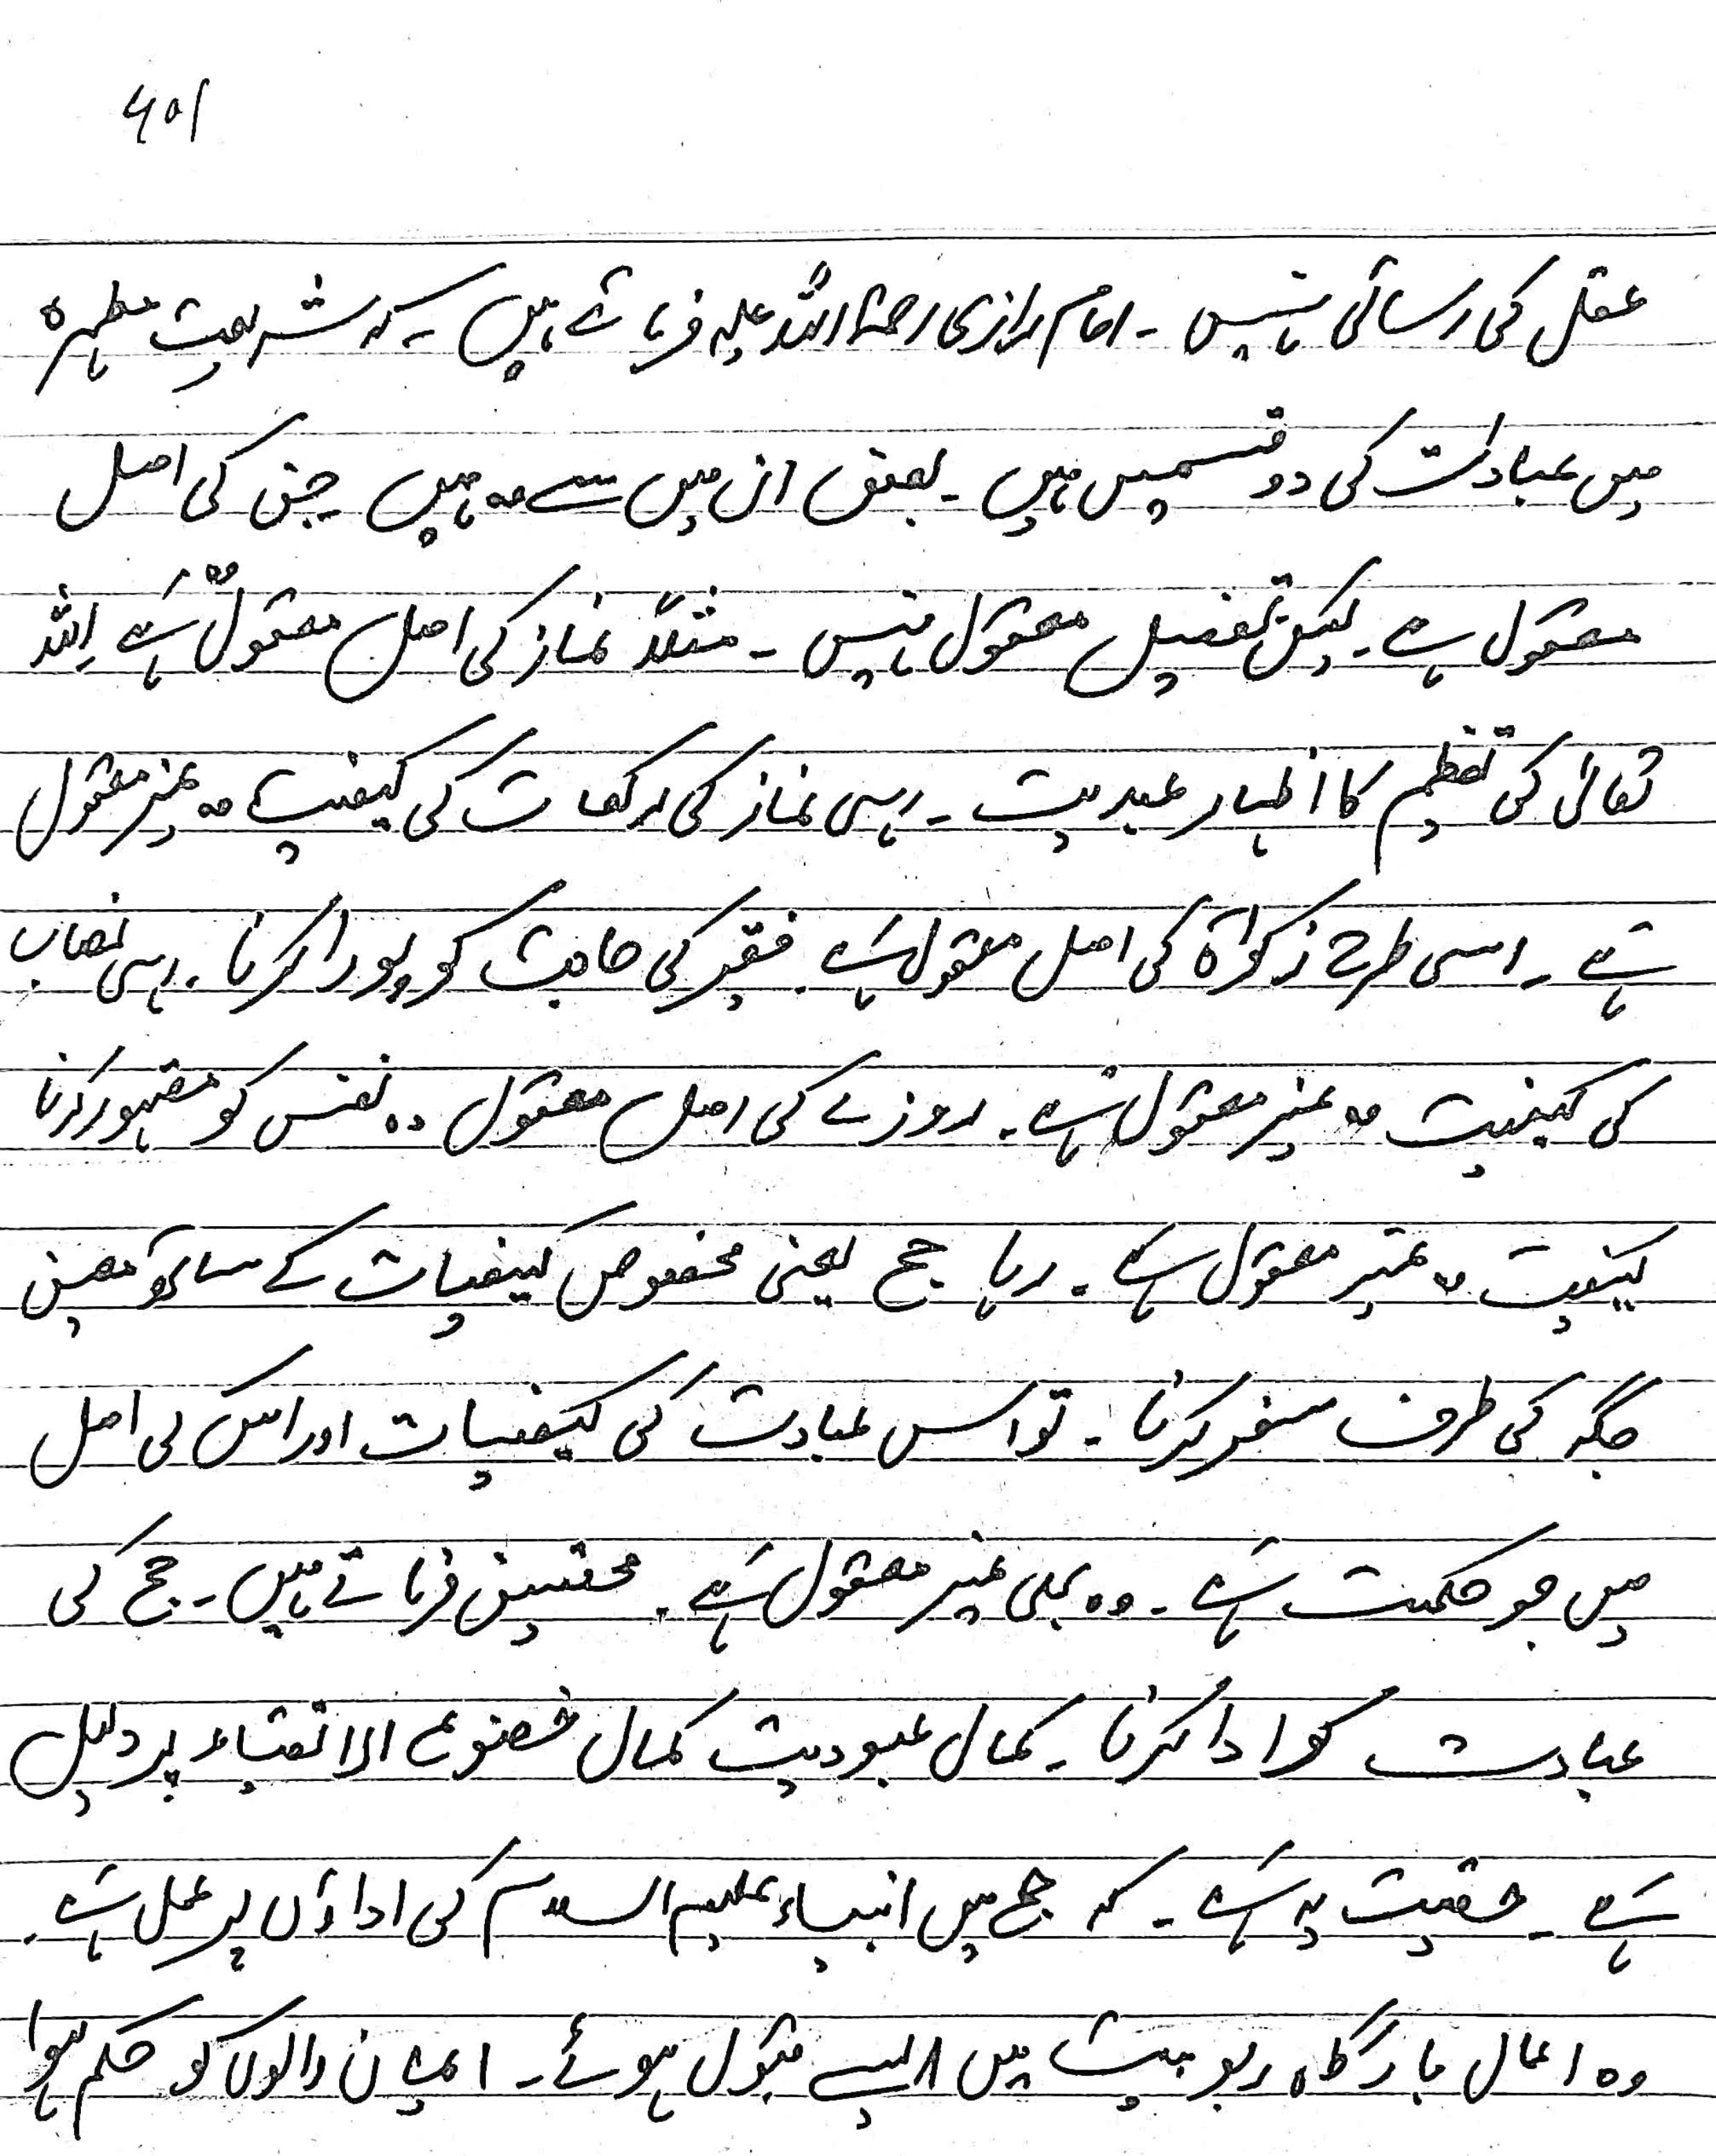 ۶۵۱
عقل کی رسائی نہیں ۔ امام رازی رحمۃ اللہ علیہ فرماتے ہیں ۔ کہ شریعت مطہرہ
میں عبادات کی دو قسمیں ہیں ۔ بعض ان میں سے وہ ہیں جن کی اصل
معقول ہے ۔ لیکن تفصیل معقول نہیں ۔ مثلاً نماز کی اصل معقول ہے وہ اللہ
تعالیٰ کی تعظیم کا اظہار عبدیت ۔ رہی نماز کی رکعات کی کیفیت وہ غیر معقول
ہے ۔ اسی طرح زکوٰۃ کی اصل معقول ہے ۔ فقیر کی حاجت کو پورا کرنا ۔ رہی نصاب
کی کیفیت وہ غیر معقول ہے ۔ روزے کی اصل معقول وہ نفس کو مقہور کرنا
کیفیت وہ غیر معقول ہے ۔ رہا حج یعنی مخصوص کیفیات کے ساتھ معین
جگہ کی طرف سفر کرنا ۔ تو اس عبادت کی کیفیات اور اس کی اصل
میں جو حکمت ہے ۔ وہ بھی غیر معقول ہے ۔ محققین فرماتے ہیں ۔ حج کی
عبادت کو ادا کرنا ۔ کمال عبودیت کمال خضوع اور انقیاد پر دلیل
ہے ۔ حقیقت یہ ہے ۔ کہ حج میں انبیاء علیہم السلام کی اداؤں پر عمل ہے ۔
وہ اعمال بارگاہ ربوبیت میں ایسے مقبول ہوئے ۔ ایمان والوں کو حکم ہوا